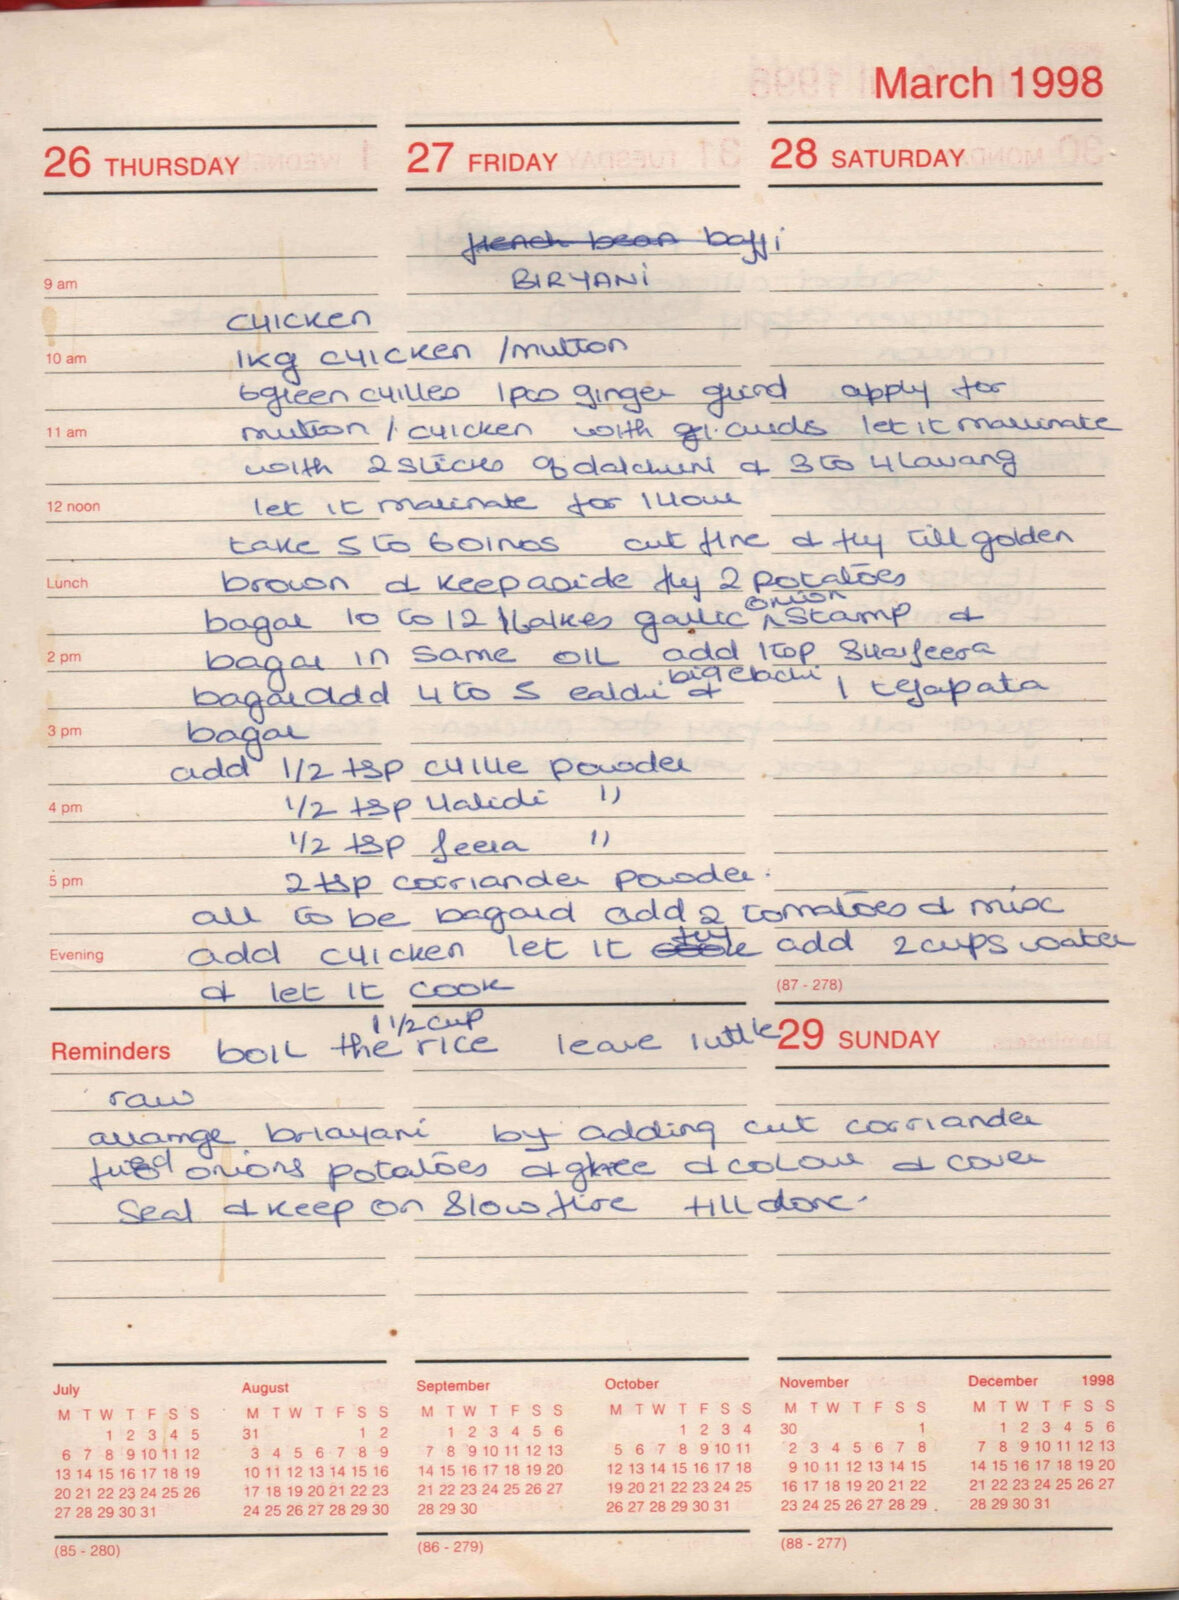 March 1998
26 THURSDAY
27 FRIDAY
28 SATURDAY
french bean baffi
BIRYANI
9 am
CHICKEN
10 am
1Kg CHICKEN / mutton
6 green chilles 1pco ginger grind apply for
11 am
mutton / CHICKEN with curds let it marinate
with 2 sticks of dalchini & 3 to 4 lavang
12 noon
let it marinate for 1 Hour
take 5 to 6 oinos cut fine & fry till golden
Lunch
brown & keep aside fry 2 potatoes
onion
bagar 10 to 12 flakes garlic stamp &
2 pm
bagar in same oil add 1tsp Shajeera
big elachi
bagar add 4 to 5 ealchi & 1 tejapata
3 pm
bagar
add 1/2 tsp chille powder
4 pm
1/2 tsp Haldi "
1/2 tsp jeera "
5 pm
2 tsp corriander powder.
all to be bagard add 2 tomatoes & mix
Evening
add chicken let it cook fry add 2 cups water
& let it cook
(87 - 278)
1 1/2 cup
Reminders
boil the rice leave little
29 SUNDAY
raw
arrange briayani by adding cut corriander
fried onions potatoes & ghee & colour & cover
Seal & keep on slow fire till done.
July
August
September
October
November
December 1998
M T W T F S S
M T W T F S S
M T W T F S S
M T W T F S S
M T W T F S S
M T W T F S S
1 2 3 4 5
31 1 2
1 2 3 4 5 6
1 2 3 4
30 1
1 2 3 4 5 6
6 7 8 9 10 11 12
3 4 5 6 7 8 9
7 8 9 10 11 12 13
5 6 7 8 9 10 11
2 3 4 5 6 7 8
7 8 9 10 11 12 13
13 14 15 16 17 18 19
10 11 12 13 14 15 16
14 15 16 17 18 19 20
12 13 14 15 16 17 18
9 10 11 12 13 14 15
14 15 16 17 18 19 20
20 21 22 23 24 25 26
17 18 19 20 21 22 23
21 22 23 24 25 26 27
19 20 21 22 23 24 25
16 17 18 19 20 21 22
21 22 23 24 25 26 27
27 28 29 30 31
24 25 26 27 28 29 30
28 29 30
26 27 28 29 30 31
23 24 25 26 27 28 29
28 29 30 31
(85 - 280)
(86 - 279)
(88 - 277)